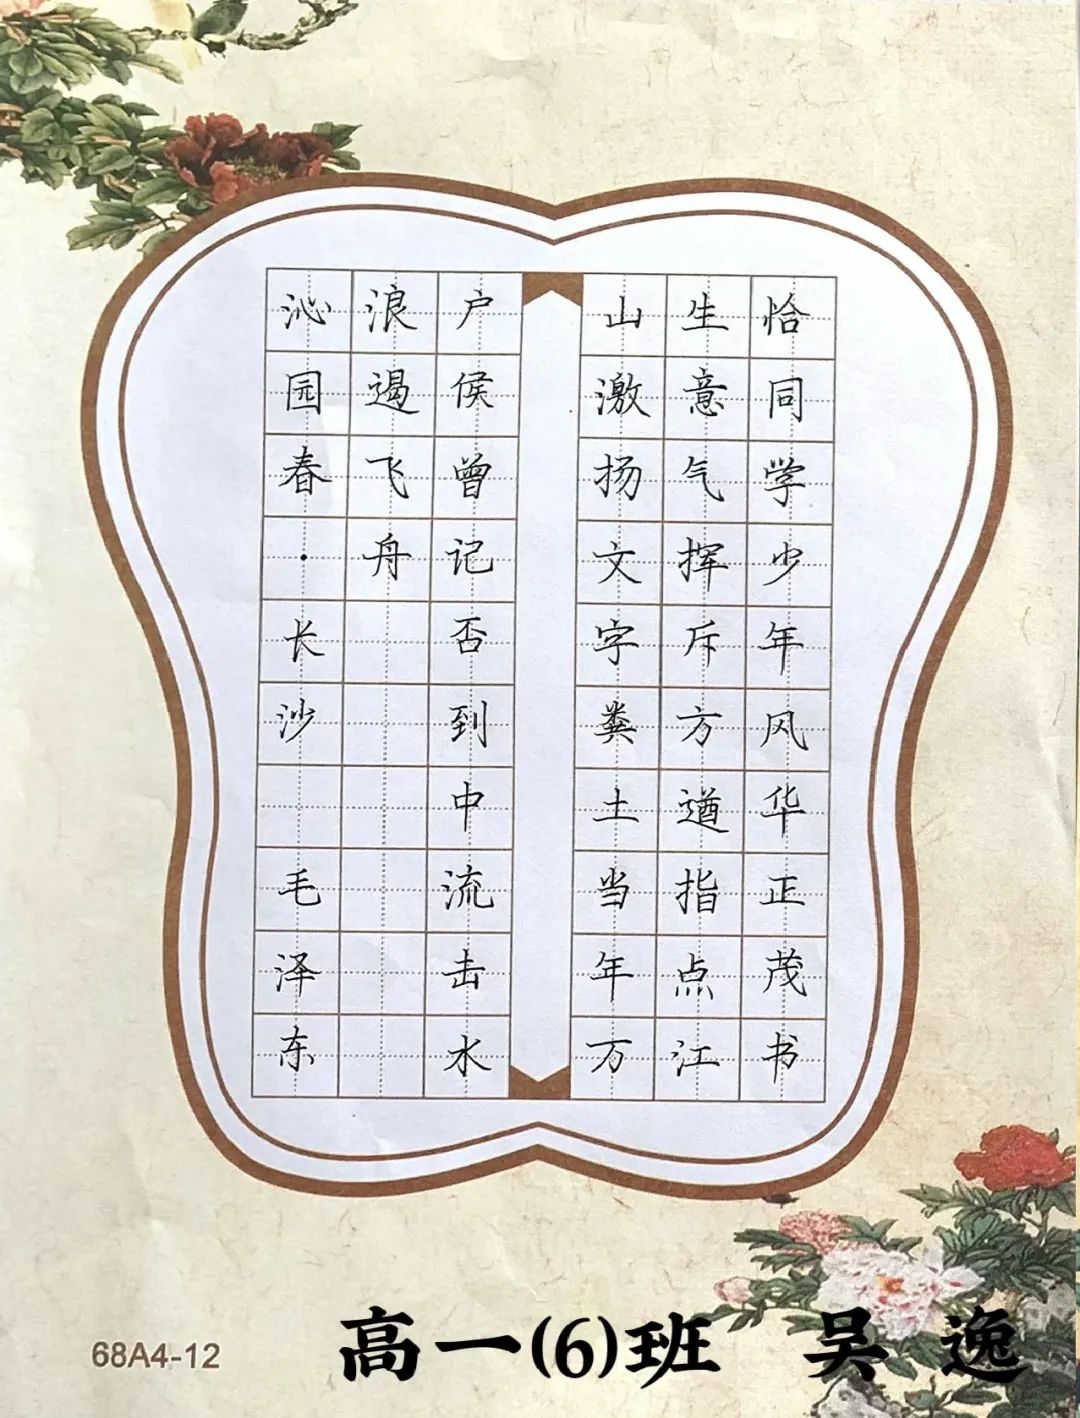 恰同学少年风华正茂书
生意气挥斥方遒指点江
山激扬文字粪土当年万
户侯曾记否到中流击水
浪遏飞舟
沁园春·长沙 毛泽东
68A4-12
高一(6)班 吴逸